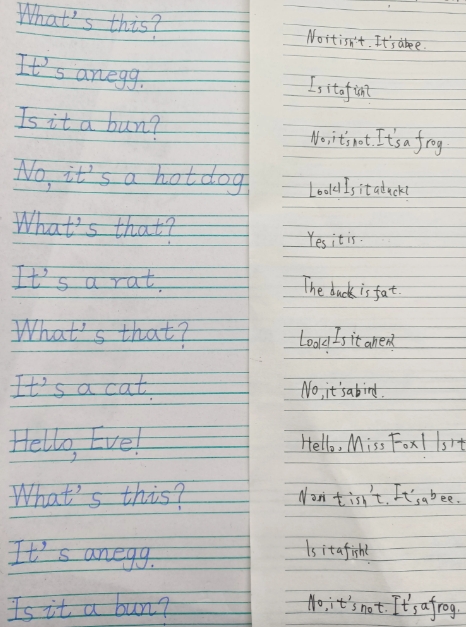 What's this?
It's anegg.
Is it a bun?
No, it's a hotdog
What's that?
It's a rat.
What's that?
It's a cat.
Hello, Eve!
What's this?
It's anegg.
Is it a bun?
Noitisn't. It'sabee.
Isitafish?
No,it'snot.It'sa frog.
Look!Isitaduck?
Yes it is.
The duck is fat.
Look!Is itahen?
No,it'sabird.
Hello, Miss Fox!
tisn't. It'sabee.
Is itafish?
No,it'snot. It'safrog.